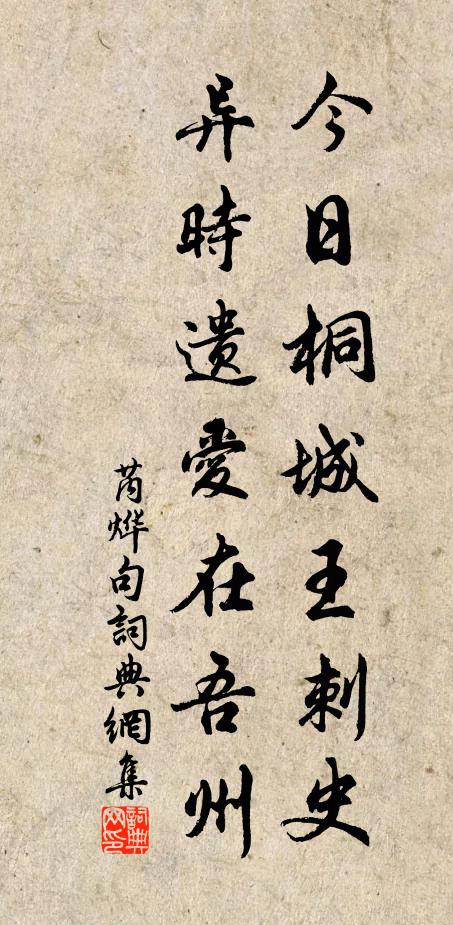 今日桐城王刺史
异時遺愛在吾州
芮烨句詞典網集
詞典網印